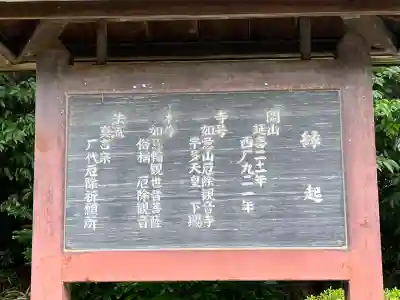 縁起
開山
延喜二十一年
西厂九二一年
寺号
如意山厄除観音寺
宇多天皇 下賜
本尊
如意輪観世音菩薩
俗称 厄除観音
宗派
真言宗
厂代厄除祈願所